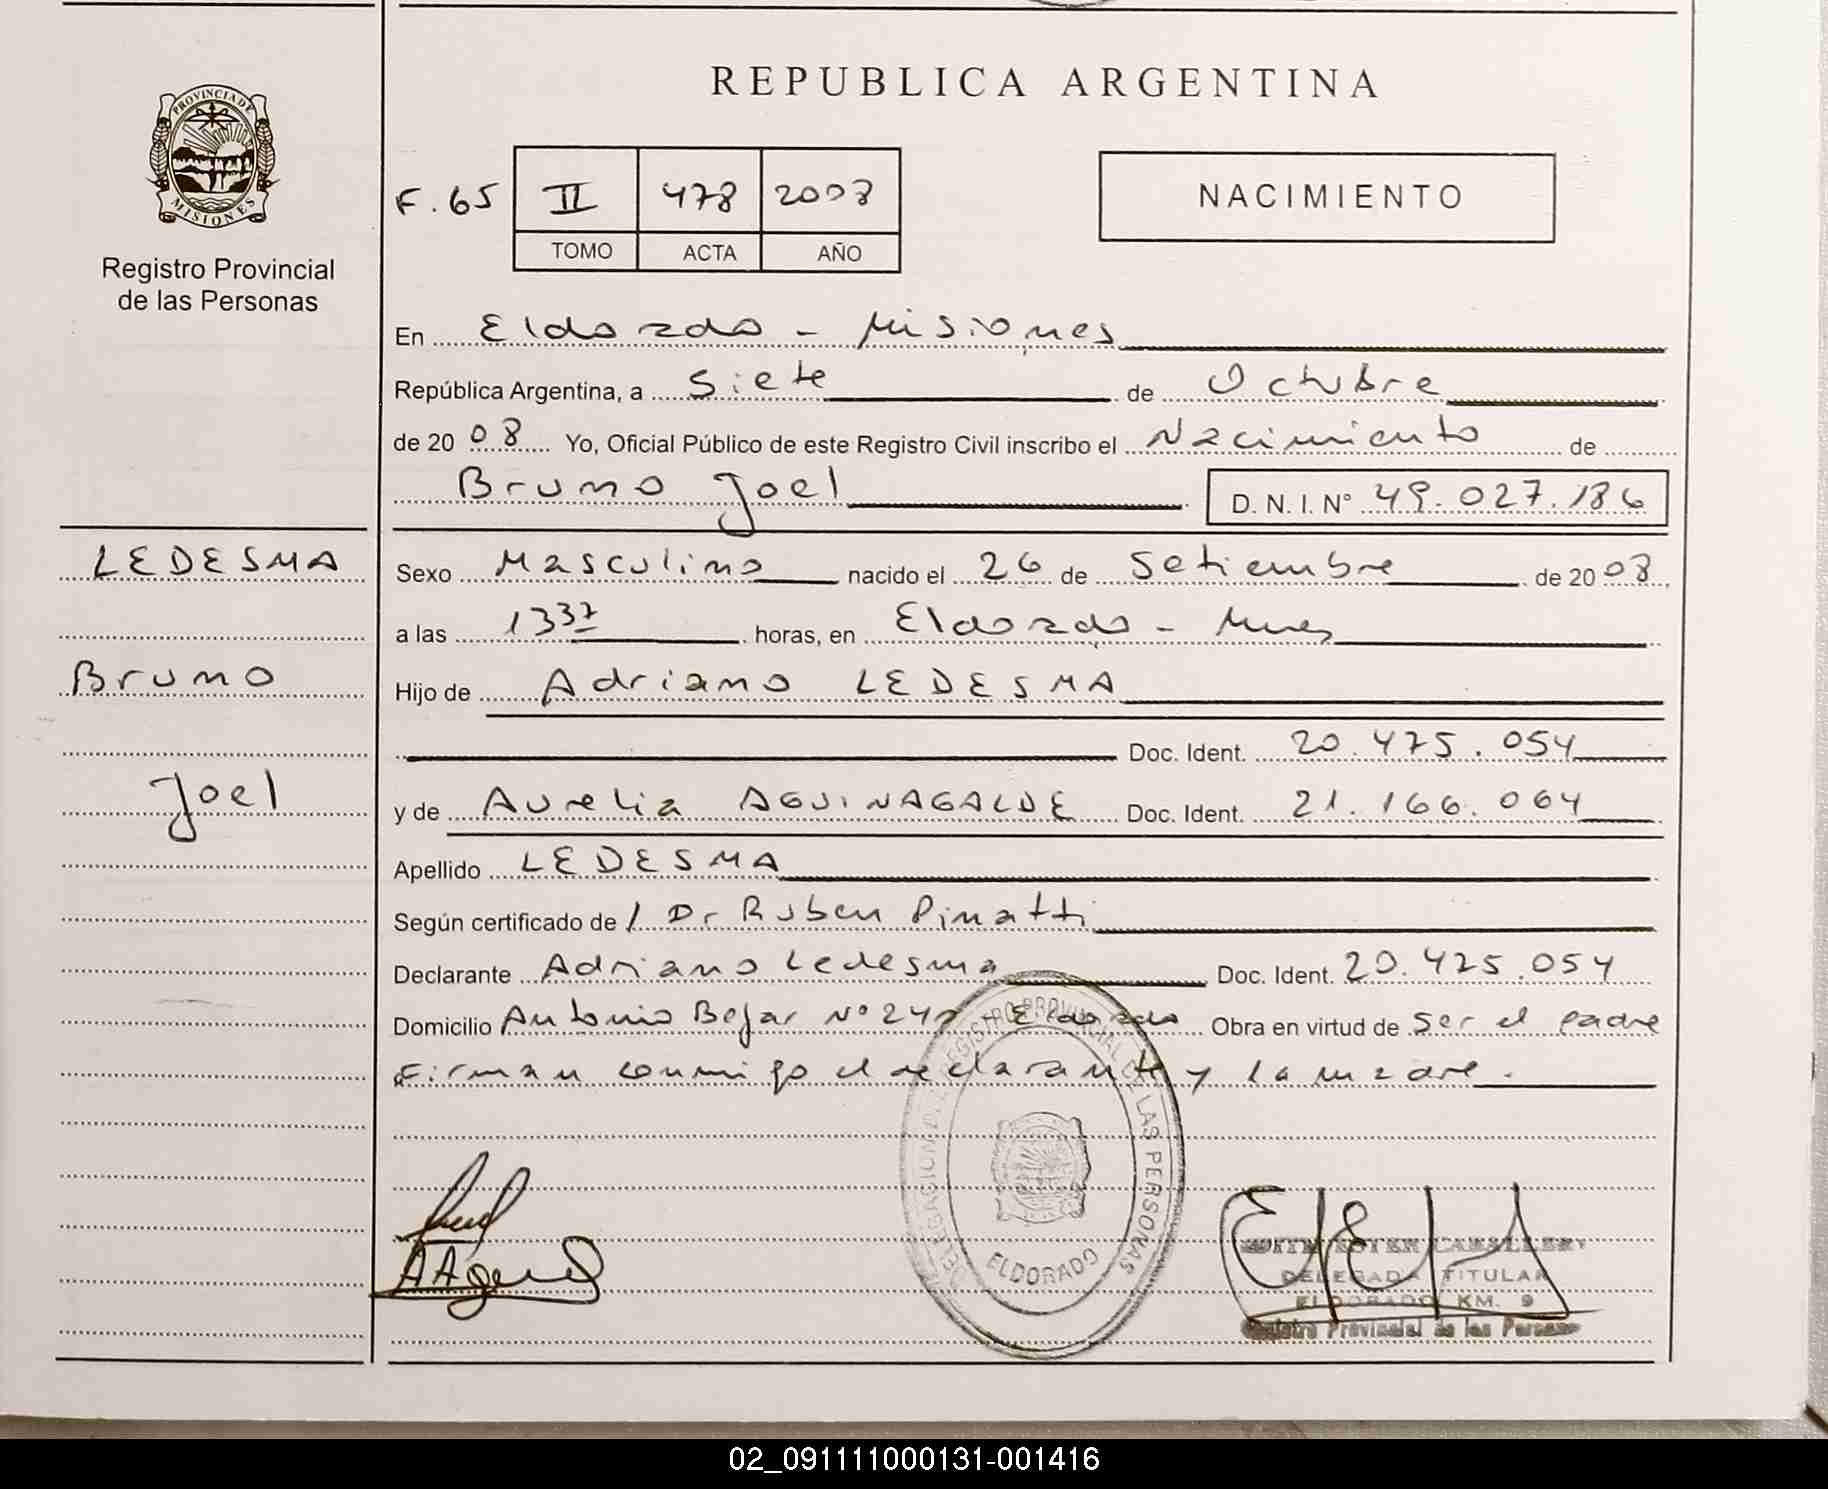 REPUBLICA ARGENTINA
PROVINCIA DE
MISIONES
Registro Provincial
de las Personas
F. 65
II 478 2008
TOMO ACTA AÑO
NACIMIENTO
En Eldorado - Misiones
República Argentina, a Siete de Octubre
de 20 08 Yo, Oficial Público de este Registro Civil inscribo el Nacimiento de
Bruno Joel D. N. I. N° 49.027.186
LEDESMA
Bruno
Joel
Sexo Masculino nacido el 26 de Setiembre de 20 08
a las 13 37 horas, en Eldorado - Mnes
Hijo de Adriano LEDESMA
Doc. Ident. 20.475.054
y de Aurelia AGUINAGALDE Doc. Ident. 21.166.064
Apellido LEDESMA
Según certificado de / Dr Ruben Pinatti
Declarante Adriano Ledesma Doc. Ident. 20.425.054
Domicilio Antonio Bejar N° Eldorado Obra en virtud de Ser el padre
Firman conmigo el declarante y la madre.
DELEGACION REGISTRO PROVINCIAL DE LAS PERSONAS
ELDORADO
DELEGADA TITULAR
ELDORADO KM. 9
Registro Provincial de las Personas
02_091111000131-001416